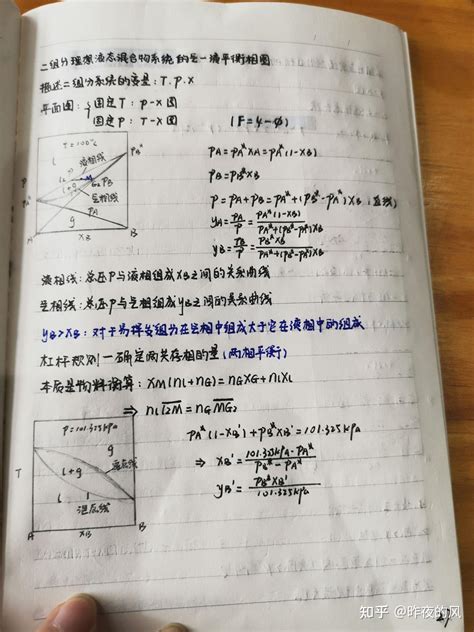 二组分理想液态混合物系统的气-液平衡相图
描述二组分系统的变量: T. p. x
平面图: 固定T: p-x图
固定p: T-x图 (F=4-Φ)
T=100℃
l
液相线
PB*
l+g
PB
PA*
气相线
PA
g
A XB B
PA=PA*XA=PA*(1-XB)
PB=PB*XB
P=PA+PB=PA*+(PB*-PA*)XB (直线)
yA=PA/P=PA*(1-XB)/PA*+(PB*-PA*)XB
yB=PB/P=PB*XB/PA*+(PB*-PA*)XB
液相线: 总压P与液相组成XB之间的关系曲线
气相线: 总压P与气相组成yB之间的关系曲线
yB>XB: 对于易挥发组分在气相中组成大于它在液相中的组成
杠杆规则—确定两共存相的量(两相平衡)
本质是物料衡算: XM(nL+nG)=nGXG+nLXL
⇒ nL L2M = nG MG2
P=101.325kPa
g
T
l+g
露点线
l
泡点线
A XB B
PA*(1-XB')+PB*XB'=101.325kPa
⇒ XB'=101.325kPa-PA*/PB*-PA*
yB'=PB*XB'/101.325kPa
知乎 @昨夜的风